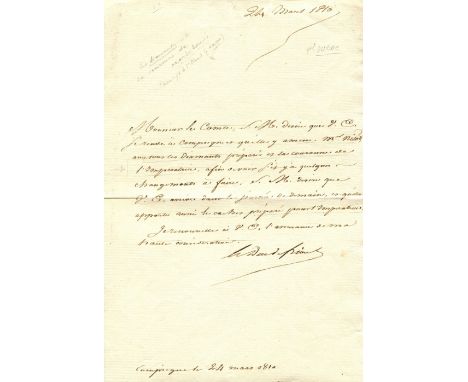 24 Mars 1810
Duroc
Monsieur le Comte, S. M. desire que V. E.
se rende à Compiegne et qu'elle y amene Mr
avec tous les Diamants préparés et la couronne de
l'Imperatrice, afin de voir s'il y a quelques
changements à faire. S. M. desire que
V. E. arrive dans la journée de demain, et qu'elle
apporte aussi le cadeau préparé pour l'Imperatrice.
Je renouvelle à V. E. l'assurance de ma
haute consideration.
le Duc de frioul
Compiegne le 24 mars 1810